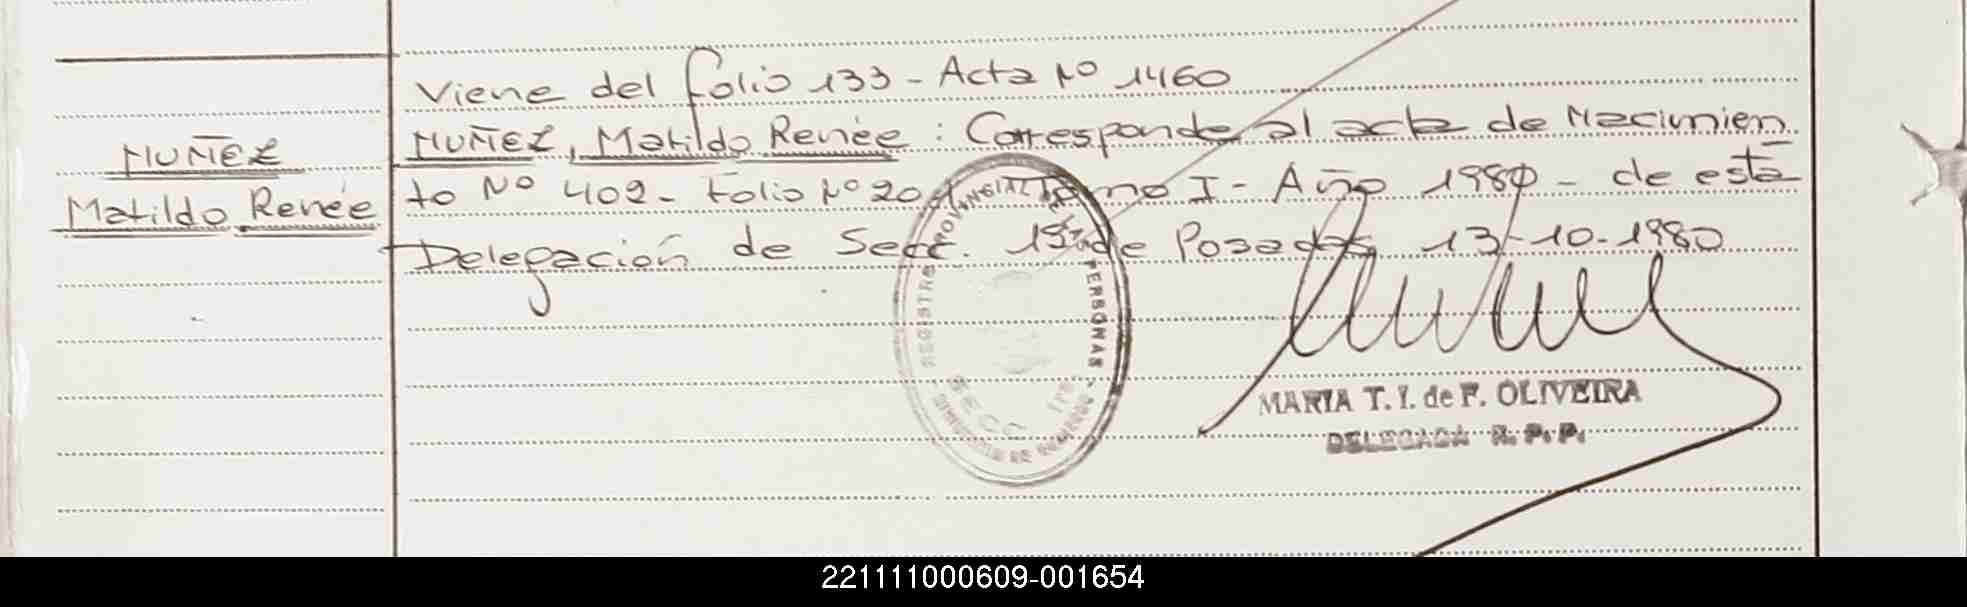 Viene del folio 133 - Acta Nº 1460
NUÑEZ
Matildo Renée
NUÑEZ, Matildo Renée : Corresponde al acta de Nacimien
to Nº 402 - Folio Nº 201 Tomo I - Año 1980 - de está
Delegación de Secc. 1ª de Posadas 13-10-1980
REGISTRO PROVINCIAL DE PERSONAS
SECC 1ra
MARIA T. I. de F. OLIVEIRA
DELEGADA R. P. P.
221111000609-001654